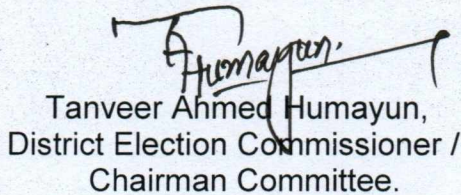 Humayun.
Tanveer Ahmed Humayun,
District Election Commissioner /
Chairman Committee.